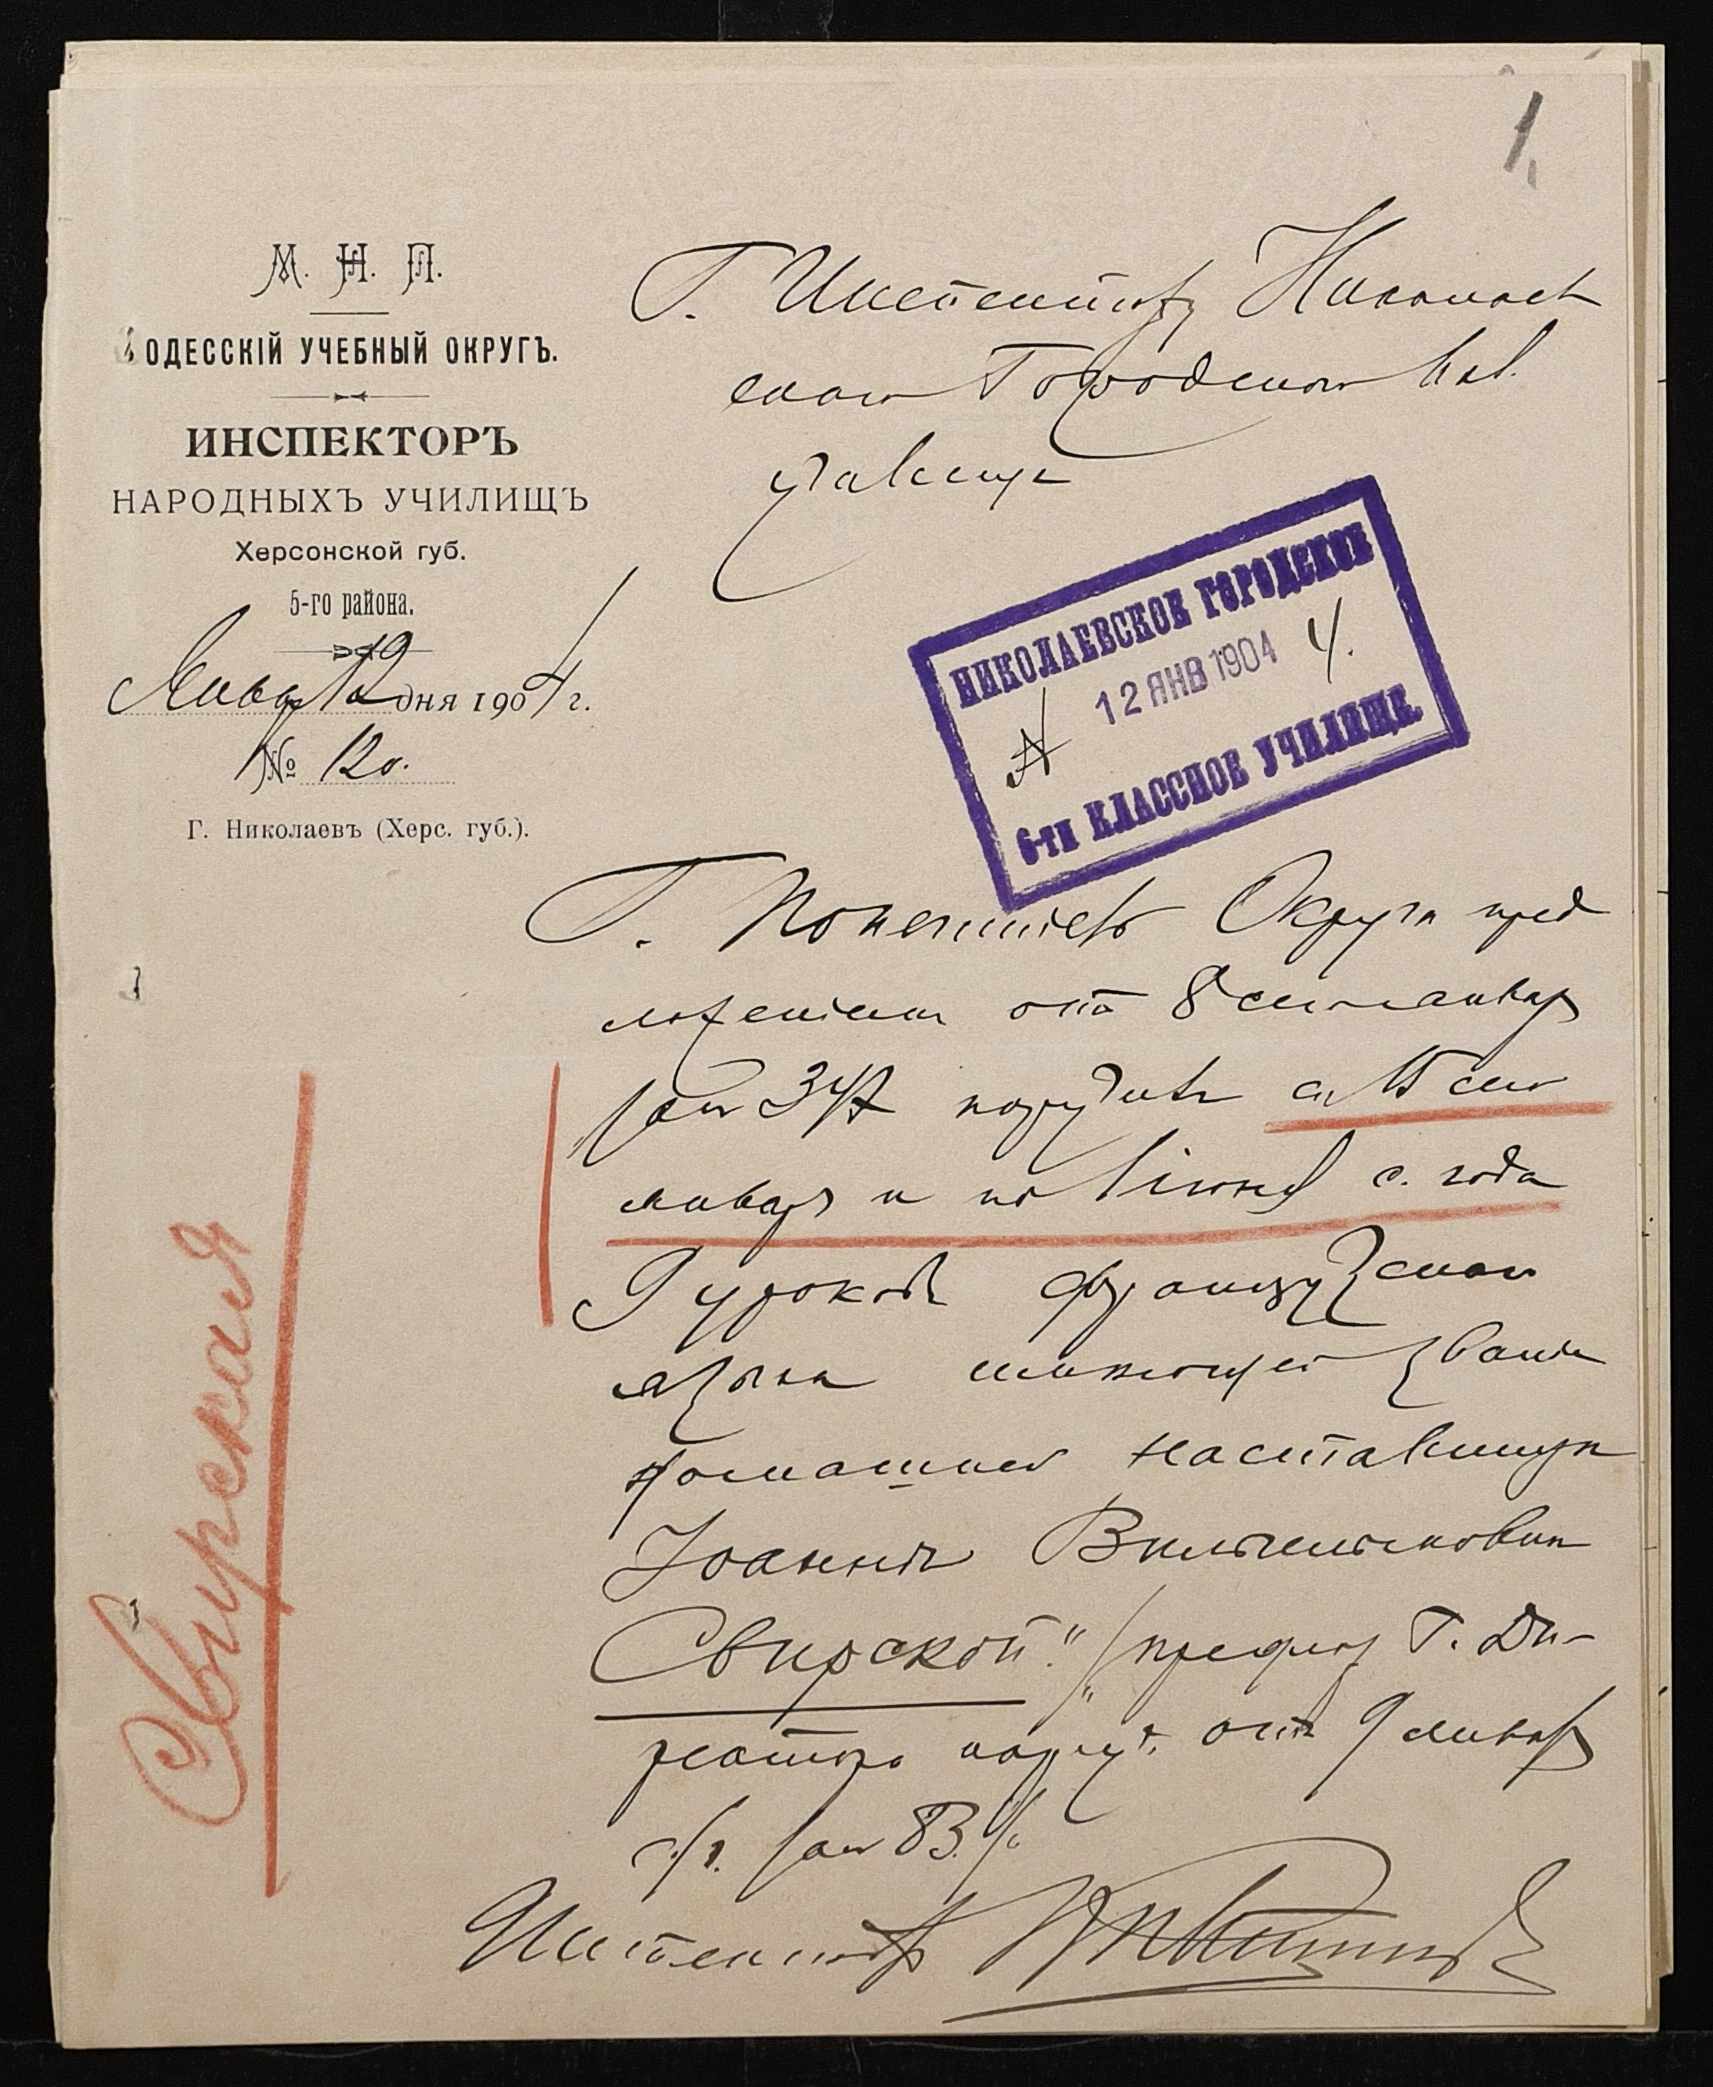 1.
М. Н. П.
ОДЕССКІЙ УЧЕБНЫЙ ОКРУГЪ.
ИНСПЕКТОРЪ
НАРОДНЫХЪ УЧИЛИЩЪ
Херсонской губ.
5-го района.
Январ 12 дня 1904 г.
№ 120.
Г. Николаевъ (Херс. губ.).
Г. Инспектору Николаев
скаго Городского
училища
НИКОЛАЕВСКОЕ ГОРОДСКОЕ
12 ЯНВ 1904
6-ТИ КЛАССНОЕ УЧИЛИЩЕ.
Г. Попечитель Округа пред
ложеніемъ отъ 8 сего января
за № 347 поручилъ съ 15 сего
января и по 1 іюня с. года
уроковъ французскаго
языка имеющей званіе
домашней наставницы
Іоаннѣ Вильгельмовнѣ
Свирской." /предлож Г. Ди-
ректора отъ 9 января
с/г. за № 83./
Инспекторъ
Свирская